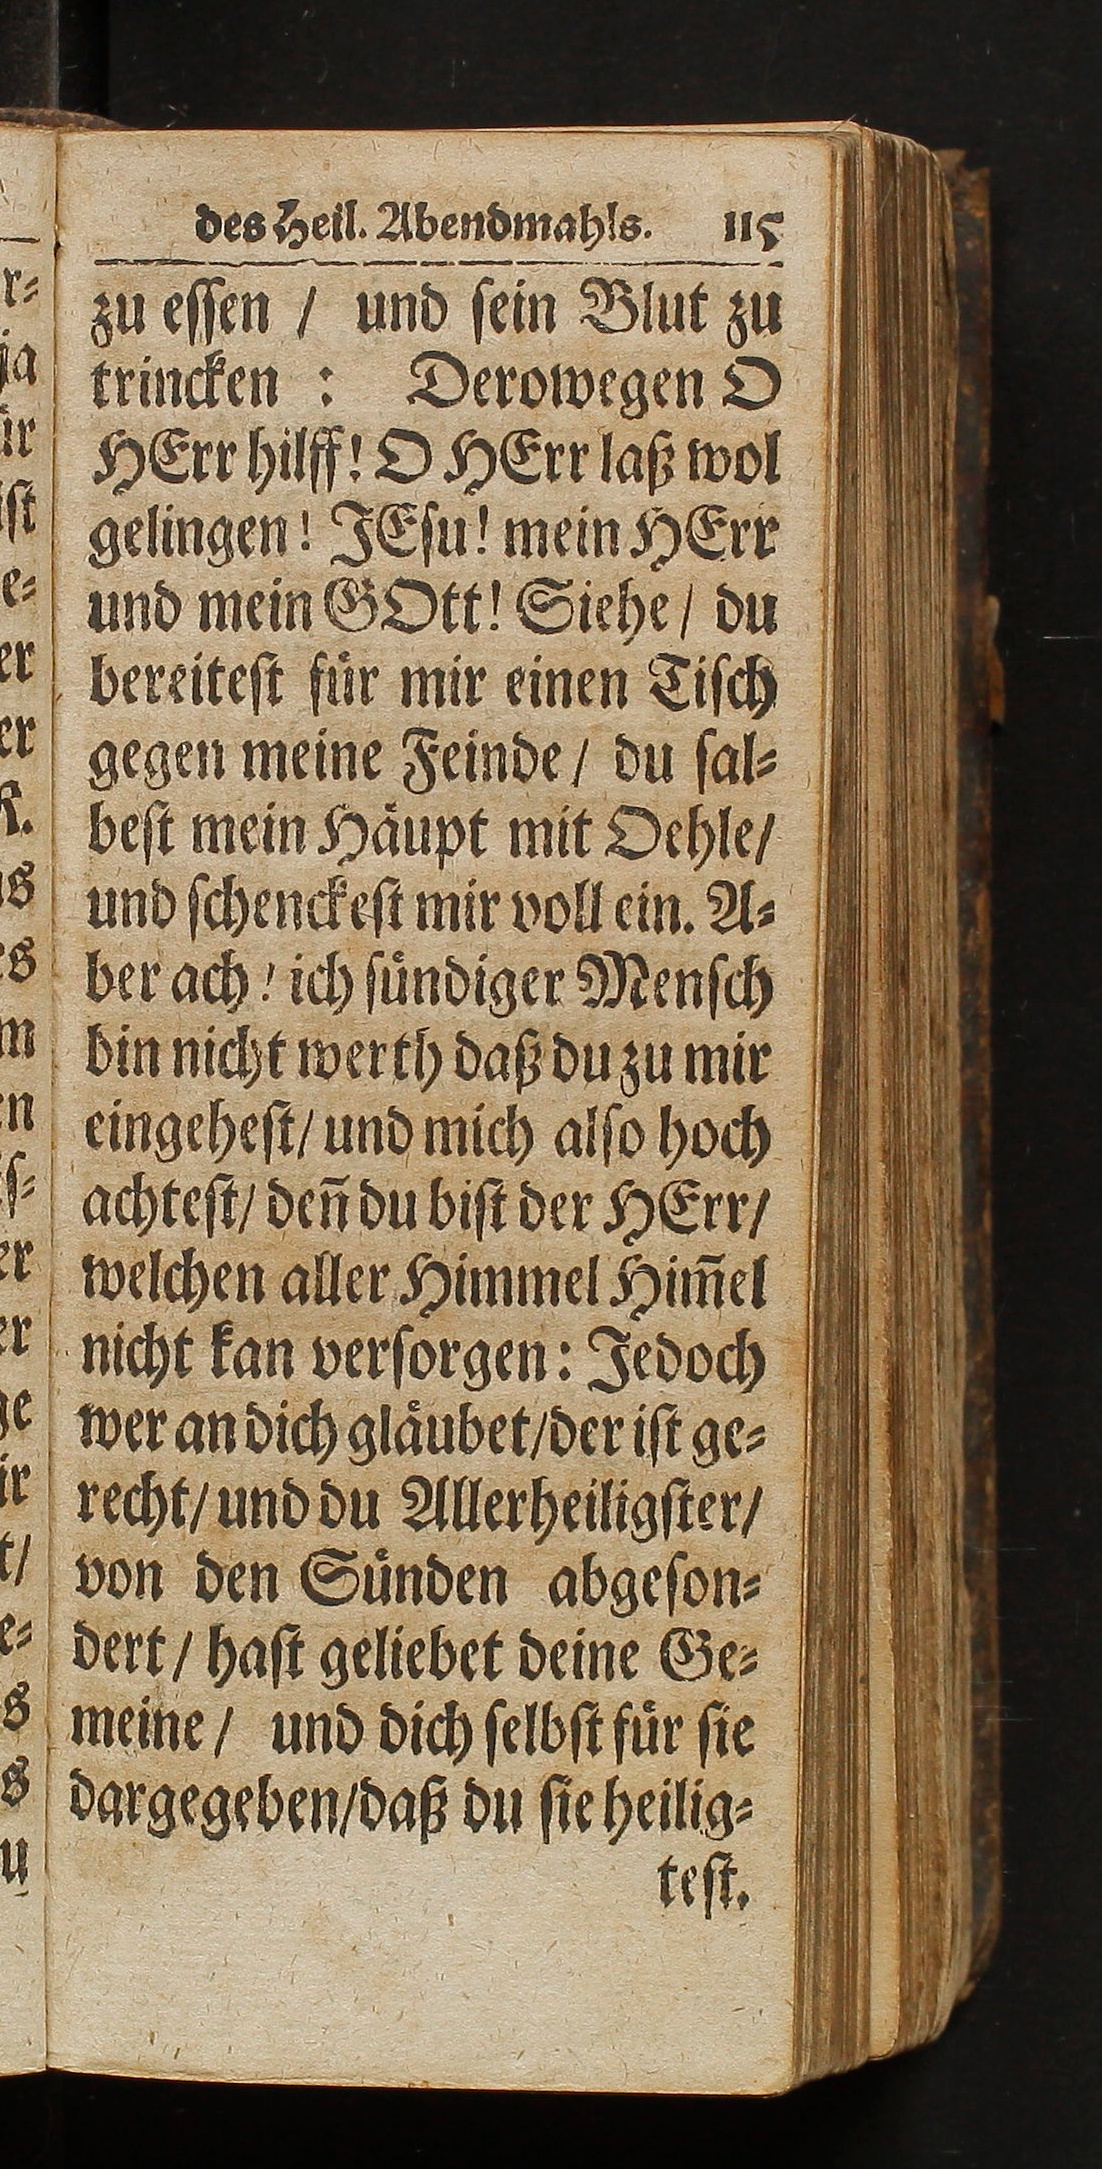 des Heil. Abendmahls. 115
zu essen / und sein Blut zu
trincken : Derowegen O
HErr hilff! O HErr laß wol
gelingen! JEsu! mein HErr
und mein GOtt! Siehe / du
bereitest für mir einen Tisch
gegen meine Feinde / du sal-
best mein Häupt mit Oehle/
und schenckest mir voll ein. A-
ber ach! ich sündiger Mensch
bin nicht werth daß du zu mir
eingehest/ und mich also hoch
achtest/ deñ du bist der HErr/
welchen aller Himmel Him̃el
nicht kan versorgen: Jedoch
wer an dich gläubet/der ist ge-
recht/ und du Allerheiligster/
von den Sünden abgeson-
dert / hast geliebet deine Ge-
meine / und dich selbst für sie
dargegeben/daß du sie heilig-
test.